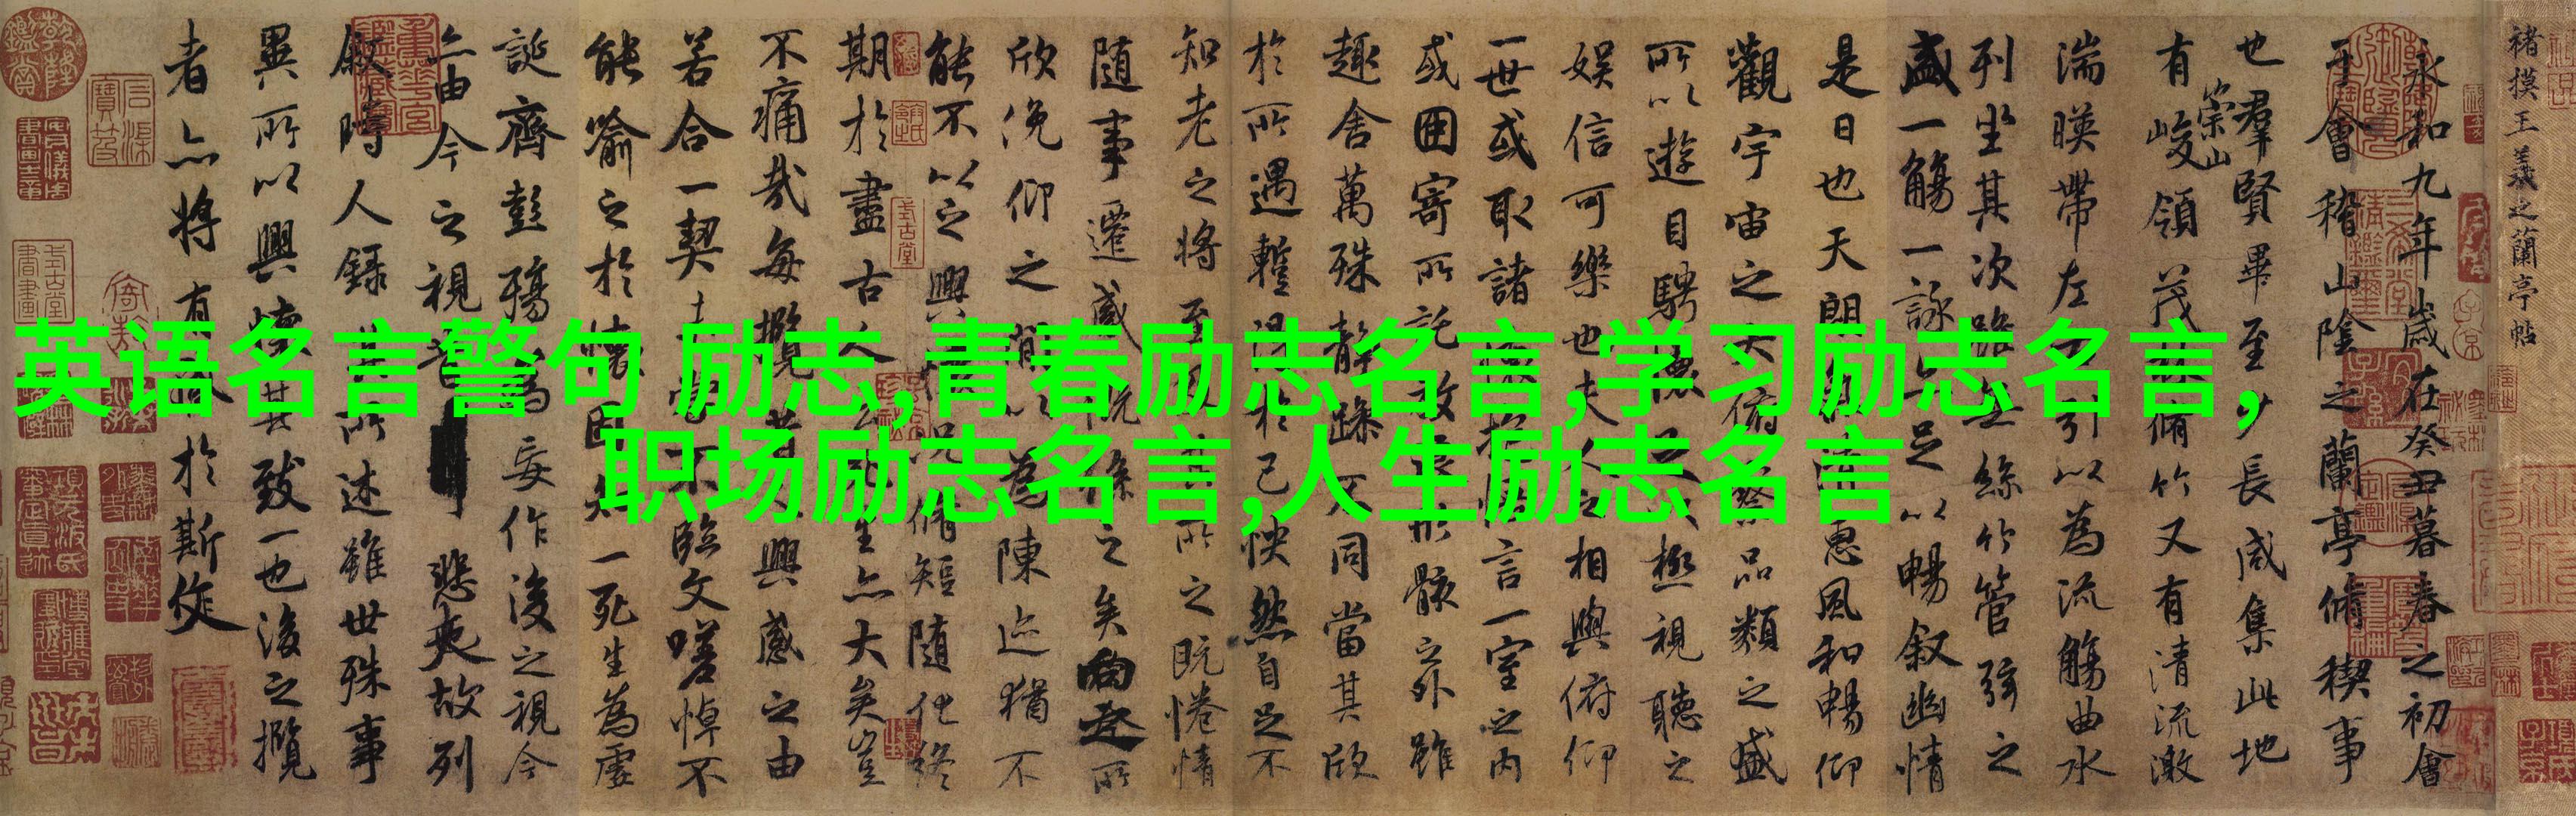 褚摸王羲之蘭亭帖
永和九年歲在癸丑暮春之初會
于會稽山陰之蘭亭脩稧事
也羣賢畢至少長咸集此地
有崇山峻領茂林脩竹又有清流激
湍暎帶左右引以為流觴曲水
列坐其次雖無絲竹管弦之
盛一觴一詠亦足以暢叙幽情
是日也天朗氣清惠風和暢仰
觀宇宙之大俯察品類之盛
所以遊目騁懷足以極視聽之
娱信可樂也夫人之相與俯仰
一世或取諸懷抱悟言一室之內
或因寄所託放浪形骸之外雖
趣舍萬殊靜躁不同當其欣
於所遇暫得於己怏然自足不
知老之將至及其所之既惓情
随事遷感慨係之矣向之所
欣俛仰之間以為陳迹猶不
能不以之興懷況脩短随化終
期於盡古人云死生亦大矣豈
不痛哉每攬昔人興感之由
若合一契未嘗不臨文嗟悼不
能喻之於懷固知一死生為虛
誕齊彭殤為妄作後之視今
亦由今之視昔悲夫故列
叙時人錄其所述雖世殊事
異所以興懷其致一也後之攬
者亦將有感於斯文
英语名言警句 励志,青春励志名言,学习励志名言,
职场励志名言,人生励志名言